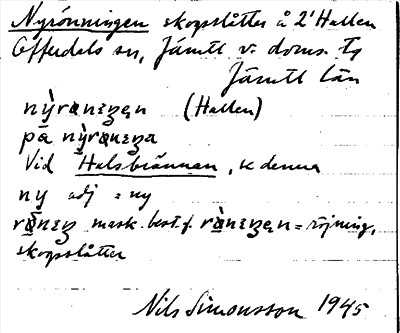 Nyrönningen skogsslåtter å 2' Hallen
Offerdals sn, Jämtl v. doms. tg
Jämtl län
nỳrønɪŋən (Hallen)
på nỳrønɪŋa
Vid Halsbrännan, se denna
ny adj = ny
mask. best. f. = röjning,
skogsslåtter
Nils Simonsson 1945